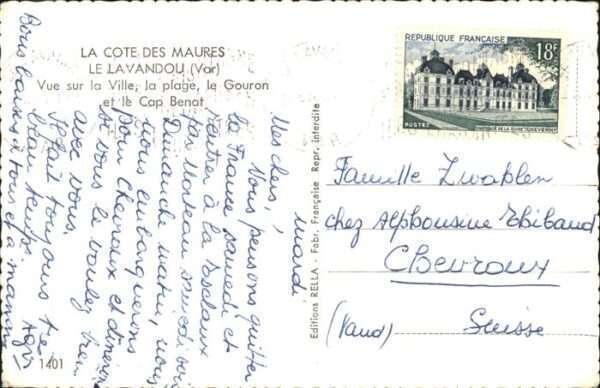 LA COTE DES MAURES
LE LAVANDOU (Var)
Vue sur la Ville, la plage, le Gouron
et le Cap Benat
REPUBLIQUE FRANÇAISE
18F
POSTES
1401
Editions RELLA - Fabr. Française Repr. interdite
mardi
Mes chers,
Nous pensons quitter
la France samedi et
rentrer à la
par bateau
Dimanche matin, nous
nous embarquerons
pour Chevroux et dînerons
si vous le voulez bien
avec vous.
Il fait toujours très
beau temps.
Bons baisers à tous et à maman
Famille Zwahlen
chez Alphonsine Thibaud
Chevroux
(Vaud) Suisse